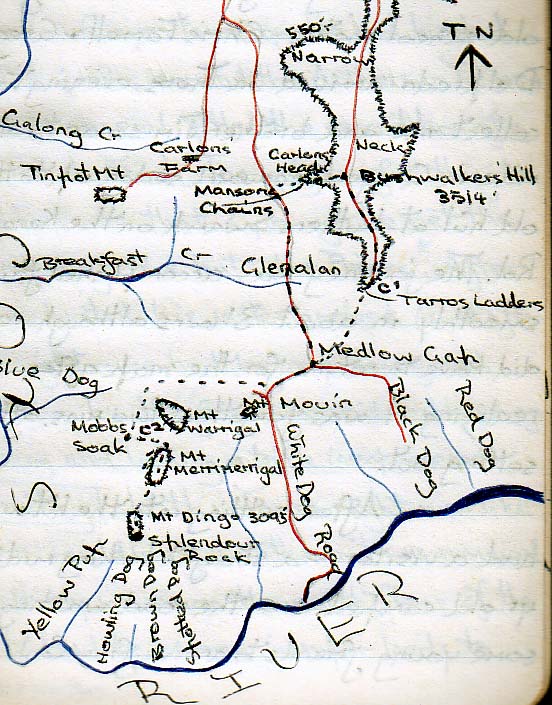 550'
Narrow
T N
Galong Cr
Carlons
Farm
Carlons
Head
Neck
Tinpot Mt
Mansons
Chains
Bushwalkers' Hill
3514'
Breakfast Cr
Glenalan
C1
Tarros Ladders
Medlow Gap
Blue Dog
Mt Mouin
Black Dog
Red Dog
Mobbs
Soak
C2
Mt
Warrigal
Mt
Merrimerrigal
White Dog
Road
S
Mt Dingo 3095'
Splendour
Rock
Yellow Pup
Howling Dog
Brown Dog
Spotted Dog
RIVER